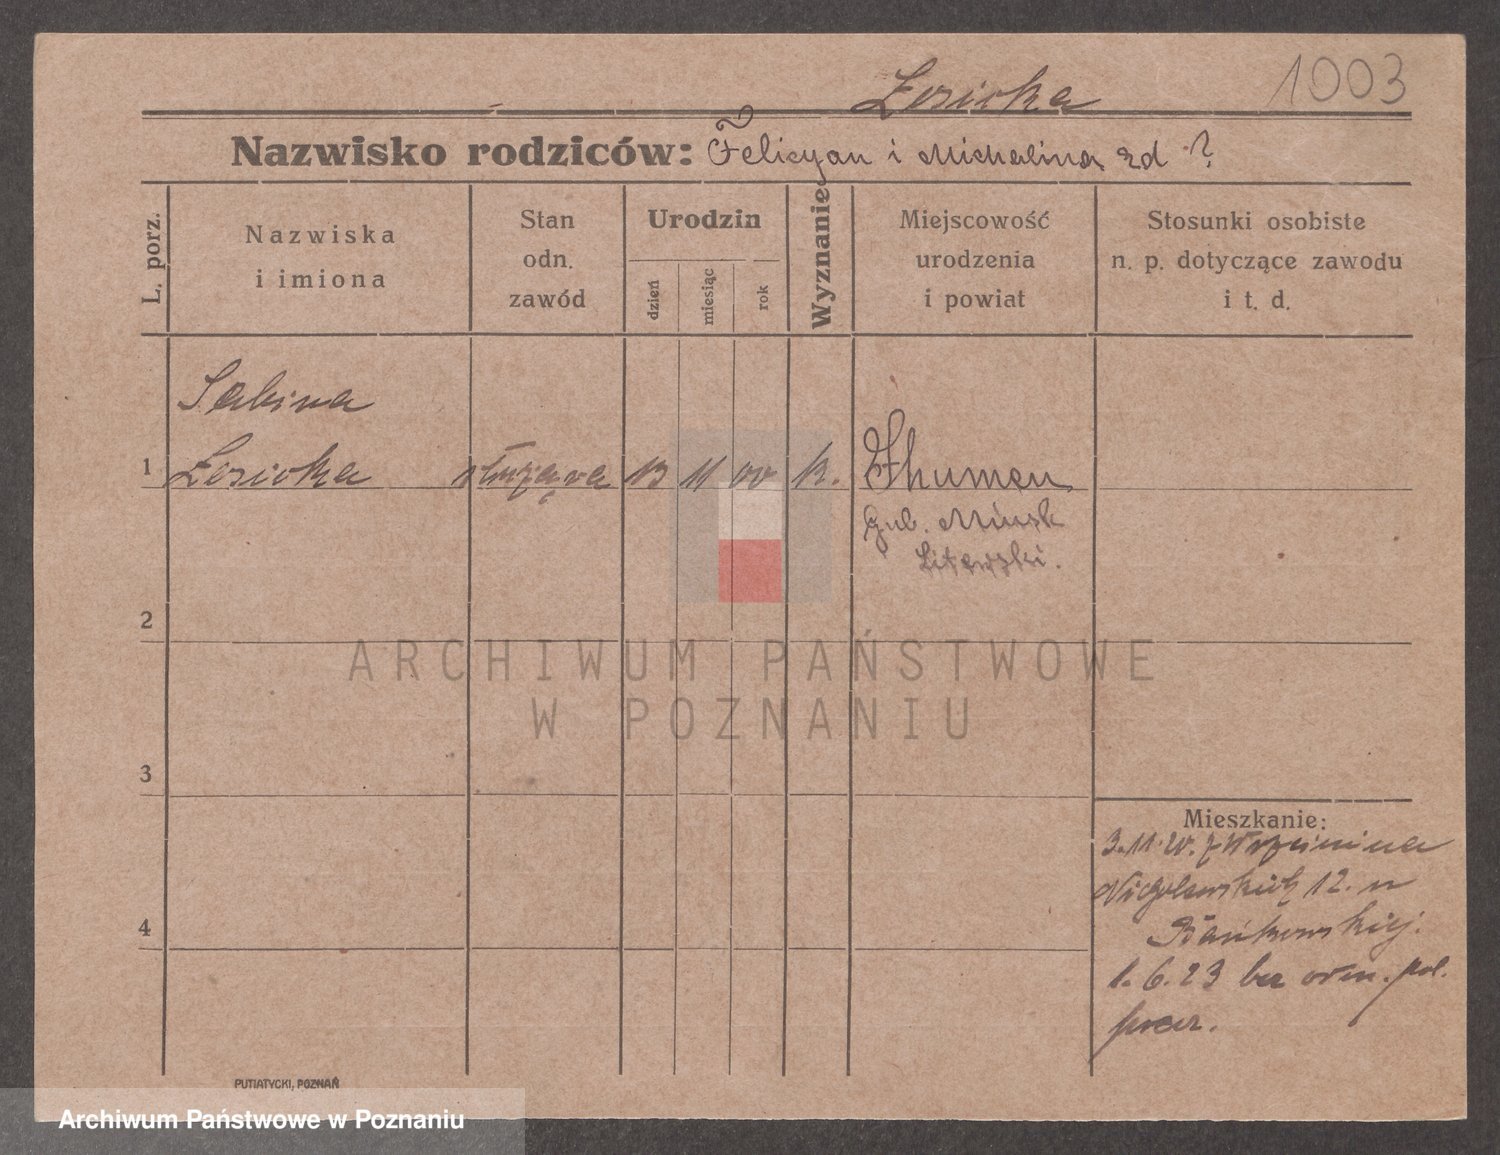 1003
Łosicka
Nazwisko rodziców: Felicyan i Michalina zd ?
L. porz.
Nazwiska
i imiona
Stan
odn.
zawód
Urodzin
dzień
miesiąc
rok
Wyznanie
Miejscowość
urodzenia
i powiat
Stosunki osobiste
n. p. dotyczące zawodu
i t. d.
Sabina
1 Łosicka służąca 13 11 00 k. Ihumen
Gub. Mińsk
Litewski.
2
ARCHIWUM PAŃSTWOWE
W POZNANIU
3
Mieszkanie:
3.11.20. z
12. u
4
Bańkowskiej.
1.6.23 bez pol.
PUTIATYCKI, POZNAŃ
Archiwum Państwowe w Poznaniu